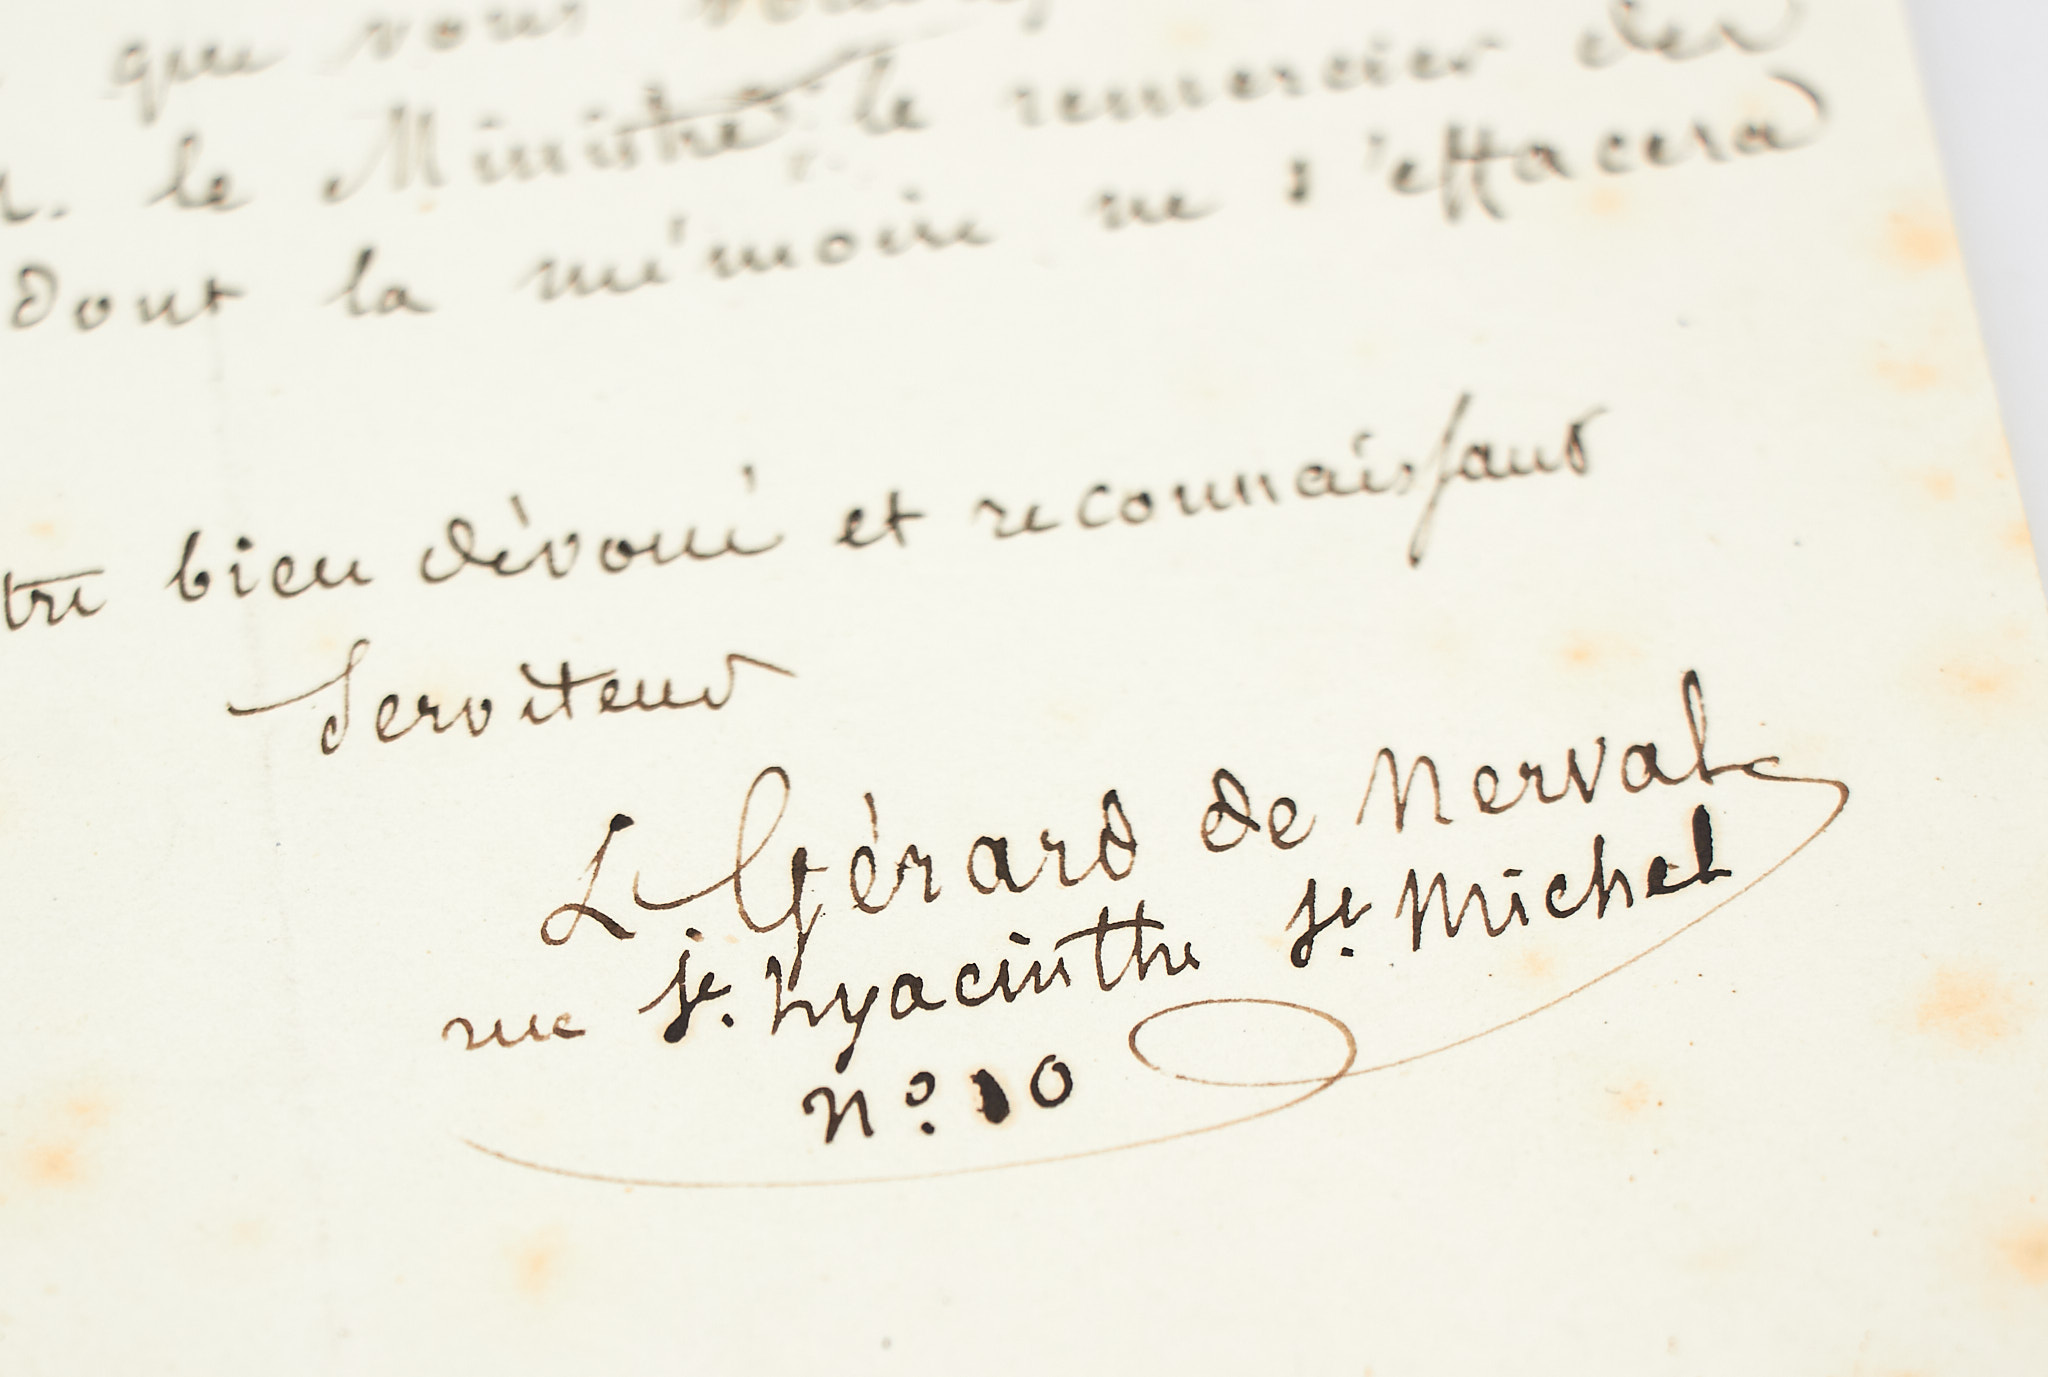 que vous
le Ministre le remercier des
dont la mémoire ne s'effacera
tre bien dévoué et reconnaissant
Serviteur
L Gérard de Nerval
rue St. hyacinthe St. Michel
No. 10